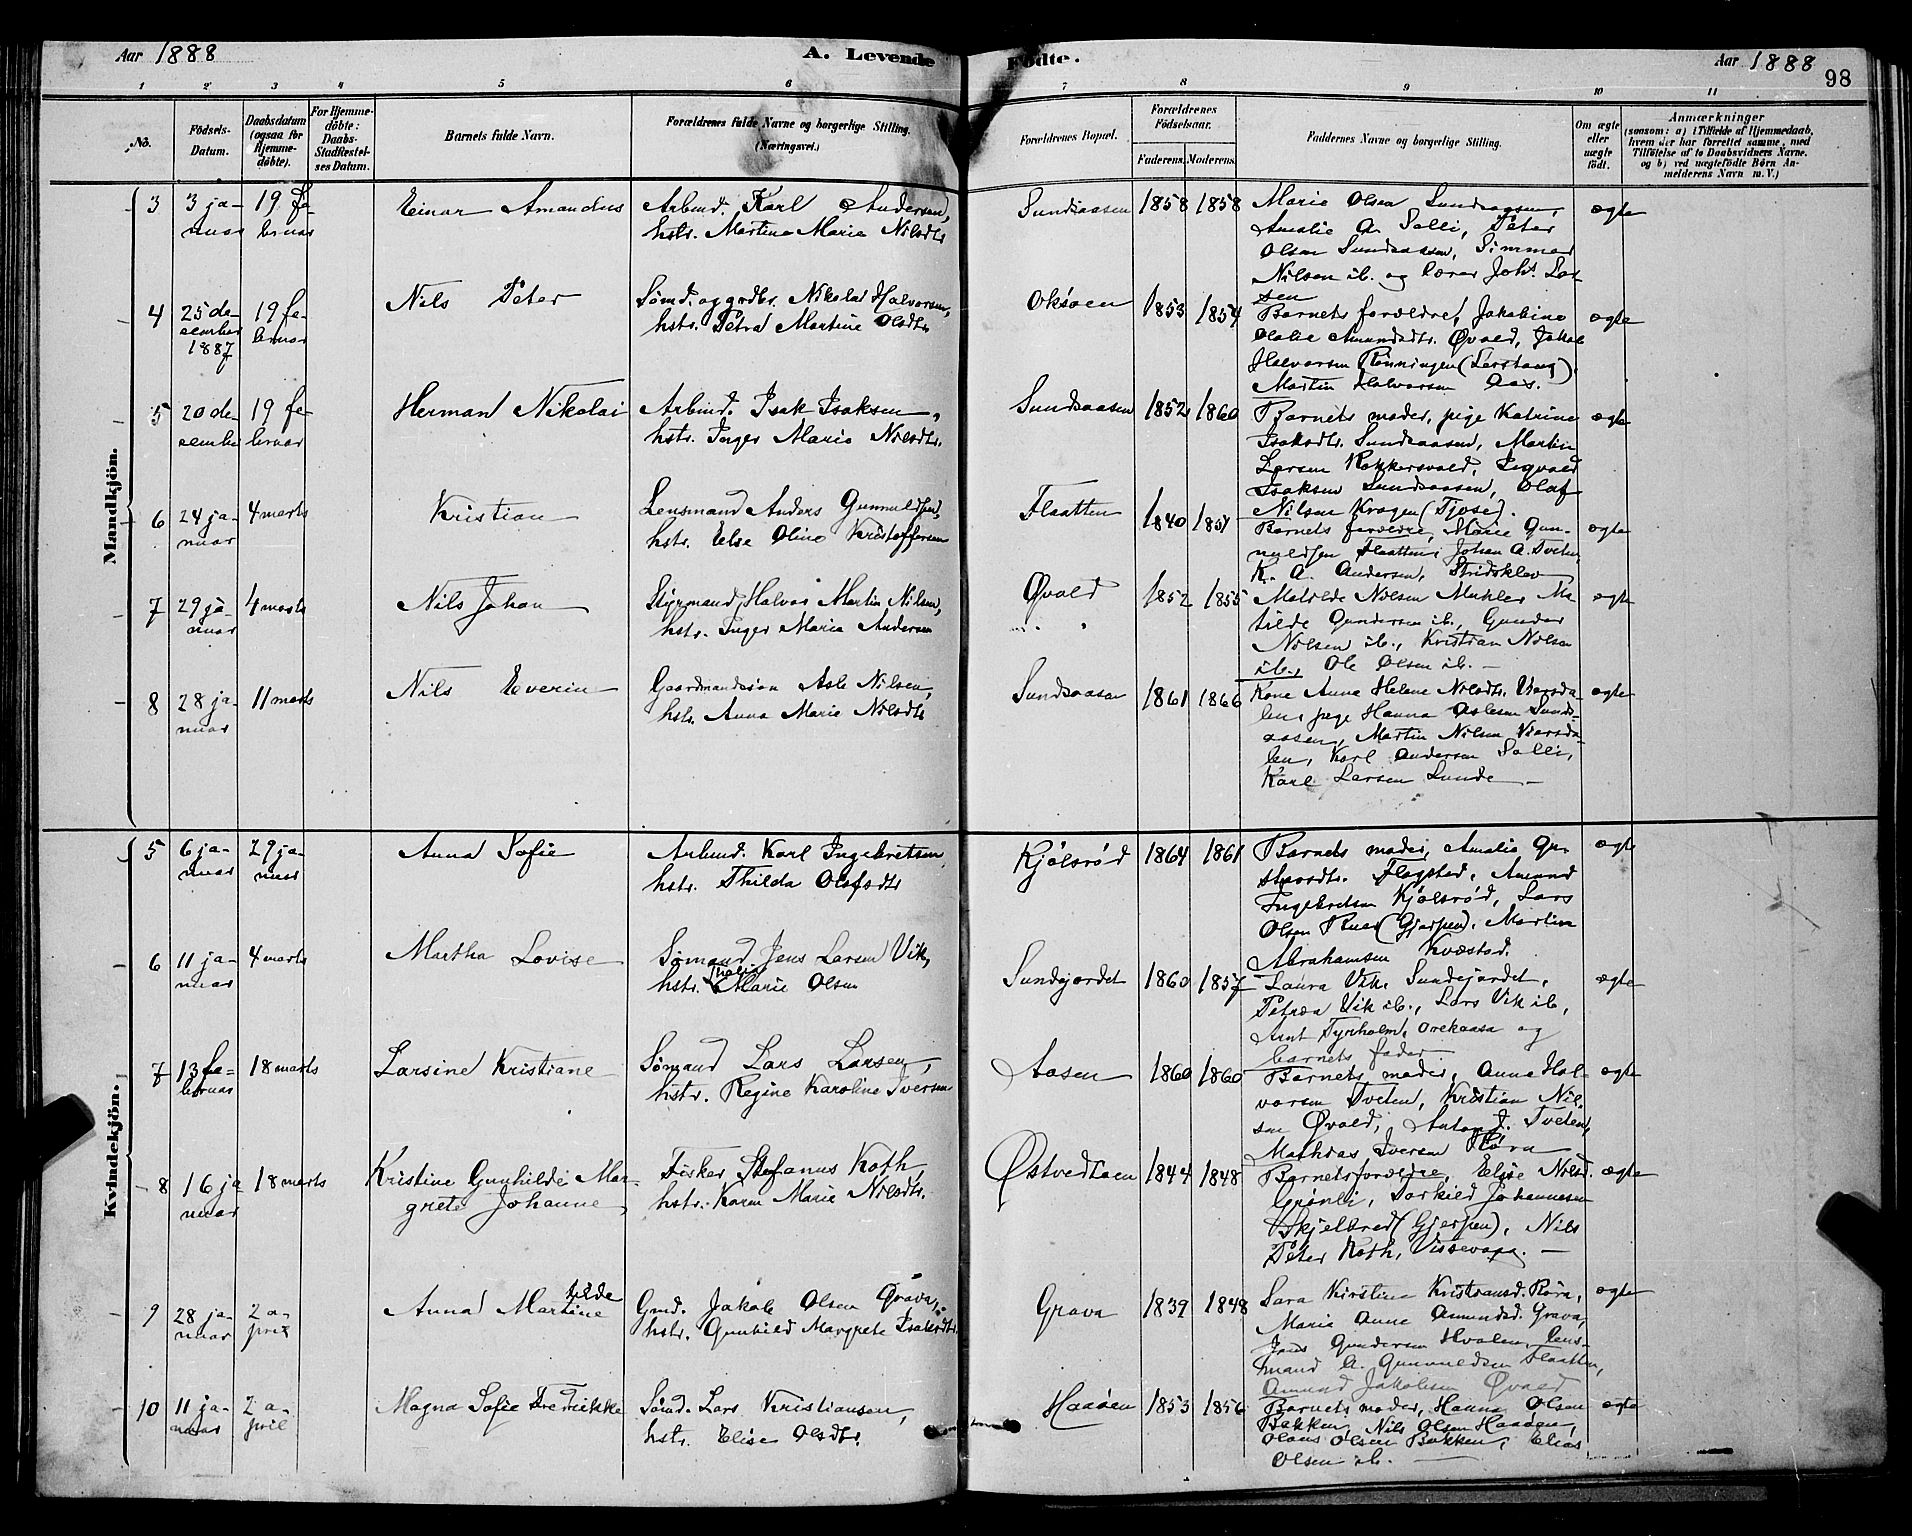 Aar 1888
A. Levende
Fødte.
Aar 1888
98
1 2 3 4 5 6 7 8 9 10 11
No.
Fødsels-
Datum.
Daabsdatum
(ogsaa for
Hjemme-
døbte).
For Hjemme-
døbte:
Daabs-
Stadfæstel-
ses Datum.
Barnets fulde Navn.
Forældrenes fulde Navne og borgerlige Stilling.
(Næringsvei.)
Forældrenes Bopæl.
Forældrenes
Fødselsaar.
Faderens. Moderens.
Faddernes Navne og borgerlige Stilling.
Om ægte
eller
uægte
født.
Anmærkninger
(saasom: a) i Tilfælde af Hjemmedaab,
hvem der har forrettet samme, med
Tilføielse af to Daabsvidners Navne.
og b) ved uægtefødte Børn An-
melderens Navn m. V.)
Mandkjön.
3
3 ja-
nuar
19 fe-
bruar
Einar Amandus
Arbmd. Karl Andersen,
hstr. Martine Marie Nilsdtr
Sundsaasen
1858 1858
Marie Olsen Sundsaasen,
Amalie A. Solli, Peter
Olsen Sundsaasen, Simmen
Nilsen ib. og lærer Johs. Lar-
sen
ægte
4
25 de-
cember
1887
19 fe-
bruar
Nils Peter
Sømd. og grdbr. Nikolai Halvorsen,
hstr. Petra Martine Olsdtr
Oksøen
1853 1854
Barnets forældre, Jakobine
Amundsdtr. Øvald, Jakob
Halvorsen Rønningen
Martin Halvorsen Aas.
ægte
5
20 de-
cember
19 fe-
bruar
Herman Nikolai
Arbmd. Isak Isaksen,
hstr. Inger Marie Nilsdtr.
Sundsaasen
1852 1860
Barnets moder, pige Katrine
Isaksdtr. Sundsaasen, Martin
Larsen Kokkersvold, Ingvald
Isaksen Sundsaasen, Olaf
Nilsen Krogen (Tjose).
ægte
6
24 ja-
nuar
4 marts
Kristian
Lensmand Anders Gunnuldsen,
hstr. Else Oline Kristoffersen
Flaatten
1840 1851
Barnets forældre, Marie Gun-
nuldsen Flaatten, Johan A. Tveten,
K. A. Andersen, Stridsklev
ægte
7
29 ja-
nuar
4 marts
Nils Johan
Styrmand Halvor Martin Nilsen,
hstr. Inger Marie Andersen
Øvald
1852 1855
Matilde Nilsen Mukler, Ma-
tilde Gundersen ib., Gunder
Nilsen ib., Kristian Nilsen
ib., Ole Olsen ib. —
ægte
8
28 ja-
nuar
11 marts
Nils Everin
Gaardmandssøn Asle Nilsen,
hstr. Anna Marie Nilsdtr
Sundsaasen
1861 1866
Kone Anna Helene Nilsdtr. Versda-
len, pige Hanna Aslesen Sunds-
aasen, Martin Nilsen Viersda-
len, Karl Andersen Solli,
Karl Larsen Lunde —
ægte
Kvindekjön.
5
6 ja-
nuar
29 ja-
nuar
Anna Sofie
Arbmd. Karl Ingebretsen,
hstr. Thilda Olofsdtr
Kjølsrød
1864 1861
Barnets moder, Amalie Gu-
stavsdtr. Flogstad, Amund
Ingebretsen Kjølsrød, Lars
Olsen Ruer (Gjerpen), Martin
Abrahamsen Kvæstad.
ægte
6
11 ja-
nuar
4 marts
Martha Lovise
Sømand Jens Larsen Vik,
hstr. Thalia Marie Olsen
Sundejordet
1860 1857
Laura Vik, Sundejordet,
Petrea Vik ib., Lars Vik ib,
Arnt Tyrholm, Orekaasa og
barnets fader
ægte
7
13 fe-
bruar
18 marts
Larsine Kristiane
Sømand Lars Larsen,
hstr. Regine Karoline Iversen
Aasen
1860 1860
Barnets moder, Anne Hal-
vorsen Tveten, Kristian Nil-
sen Øvald, Anton J. Tveten,
Mathias Iversen Røra
ægte
8
16 ja-
nuar
18 marts
Kristine Gunhilde Mar-
grete Johanne
Fisker Stefanus Koth,
hstr. Karen Marie Nilsdtr.
Østvedtøen
1844 1848
Barnets forældre, Elise Nilsd.
Grønli, Torkild Johannesen
Skjelbred (Gjerpen), Nils
Peter Koth, Vissevaag. —
ægte
9
28 ja-
nuar
2 a-
pril
Anna Martine
tilde
Gmd. Jakob Olsen Grava,
hstr. Gunhild Margrete Isaksdtr.
Grava
1839 1848
Sara Kirstine Kristiansd. Røra,
Marie Anne Amundsd. Grava,
Jens Gundersen Hvalen, lens-
mand A. Gunnuldsen Flaatten,
Amund Jakobsen Øvald
ægte
10
11 ja-
nuar
2 a-
pril
Magna Sofie Fredrikke
Sømd. Lars Kristiansen,
hstr. Elise Olsdtr.
Haaøen
1853 1856
Barnets moder, Hanna Olsen
Bakken, Nils Olsen Haaøen,
Olaus Olsen Bakken, Elias
Olsen ib. —
ægte